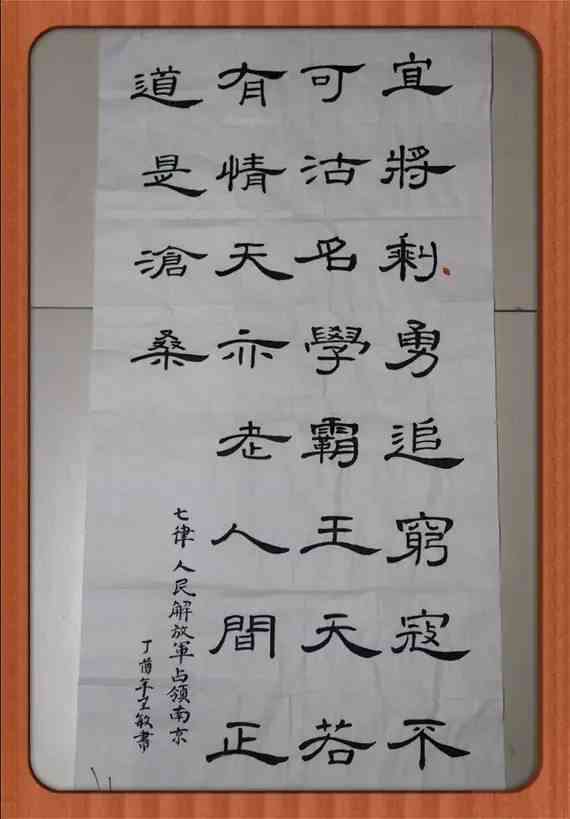 宜將剩勇追窮寇不
可沽名學霸王天若
有情天亦老人間正
道是滄桑
七律 人民解放軍占領南京
丁酉年王敏書